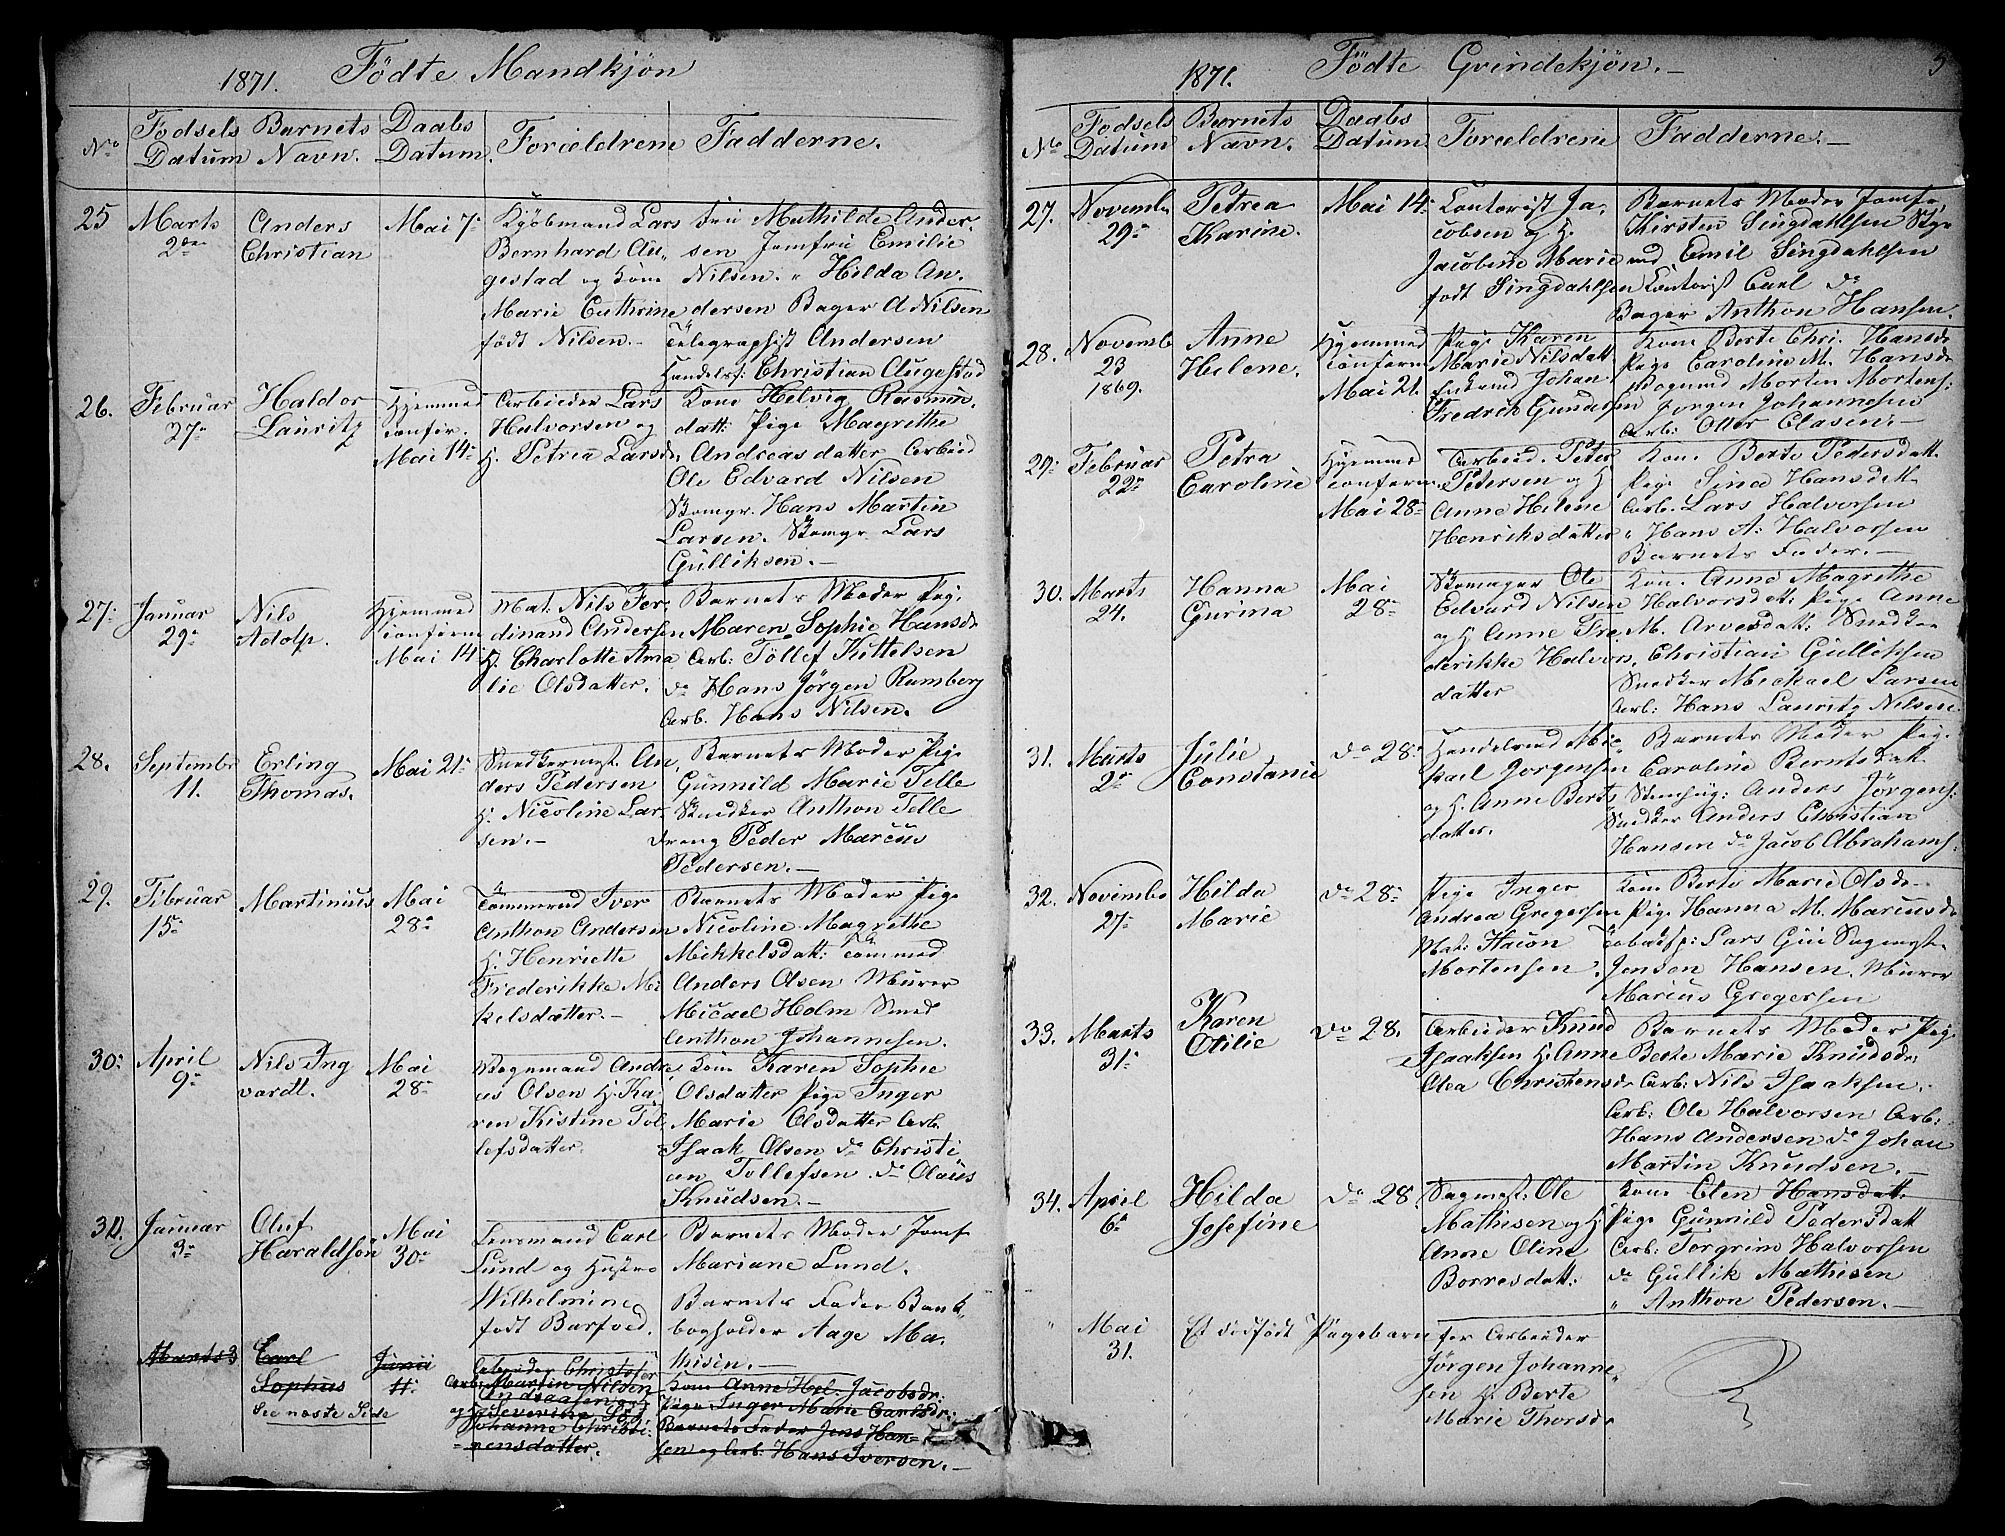 1871. Födte Mandkjön
No
Fodsels Datum
Barnets Navn.
Daabs Datum.
Forældrene
Fadderne.
25
Marts
2den
Anders
Christian
Mai 7.
Kjöbmand Lars
Bernhard Au-
gestad og Kone
Marie Cathrine
födt Nilsen.
fru Mathilde Ander-
sen Jomfru Emilie
Nilsen. " Hilda An-
dersen Bager A Nilsen
Telegraphist Andersen
Handelsf: Christian Augestad
26.
Februar
27
Haldor
Lauritz
Hjemmed
confir.
Mai 14
Arbeider Lars
Halvorsen og
H. Petrea Larsd.
Kone Helvig Rasmus
datt: Pige Magrethe
Andreasdatter Arbeid
Ole Edvard Nilsen
Skomgr. Hans Martin
Larsen. Skomgr. Lars
Gulliksen.
27.
Januar
29
Nils
Adolp.
Hjemmed
confirm
Mai 14
Mat: Nils Fer-
dinand Andersen
H. Charlotte Ama
lie Olsdatter.
Barnets Moder Pig.
Maren Sophie Hansd.
Arb: Tollef Kittelsen
do Hans Jörgen Ramberg
Arb. Hans Nilsen.
28.
Septembr
11.
Erling
Thomas.
Mai 21
Snedkermest. An
ders Pedersen
H. Nicoline Lar-
sen.
Barnets Moder Pige
Gunnild Marie Telle
Snedker Anthon Telle
Dreng Peder Marcus
Pedersen.
29.
Februar
15
Martinius
Mai
28
Tömmermd Iver
Anthon Andersen
H. Henriette
Frederikke Mi
kelsdatter.
Barnets Moder Pige
Nicoline Magrethe
Mikkelsdatt: Tömmed
Anders Olsen Murer
Micael Holm Smed
Anthon Johannesen.
30.
April
9
Nils Ing
vardt.
Mai
28
Bogemand Andre
as Olsen H. Ka
ren Kistine Tol
lefsdatter.
Kone Karen Sophie
Olsdatter Pige Inger
Marie Olsdatter Arb.
Isaak Olsen do Christi
an Tollefsen do Olaus
Knudsen.
31.
Januar
3
Oluf
Haraldsön
Mai
30
Lensmand Carl
Lund og Hustro
Wilhelmine
födt Barfoed.
Barnets Moder Jomf
Mariane Lund.
Barnets Fader Bank
bogholder Aage Ma.
thisen.
Marts 3
Carl
Sophus
See næste Side
Junii
11
Arbeider Christofer
Arb: Martin Nilsen
Johanne Christi-
nensdatter.
Kone Anne Hel. Jacobsdr:
Pige Inger Marie Carlsdr:
Barnets Fader Jens Han-
sen og Arb. Hans Iversen.
1871. Födte Qvindekjön.
5
No
Fodsels Datum
Barnets Navn.
Daabs Datum
Forældrene
Fadderne.
27.
Novembr
29
Petrea
Karine.
Mai 14
Contorist Ja-
cobsen og H.
Jacobine Marie
födt Singdahlsen
Barnets Moder Jomfr.
Kirsten Singdahlsen
Emil Singdahlsen
Contorist Carl do
Bager Anthon Hansen.
28.
Novemb
23
1869.
Anne
Helene.
Hjemmed
confirm
Mai 21.
Pige Karen
Marie Nilsdatt
Johan
Fredrik Gundersen
Kone Berte Chri. Hansd.
Pige Caroline M. Hansd
Bogmd Morten Mortens:
Jorgen Johannesen
Arb: Olter Clasen.
29.
Februar
22
Petra
Caroline
Hjemmed
confirm
Mai 28
Arbeid. Peter
Petersen og H
Anne Helene
Henriksdatter
Kone Berte Pedersdatt.
Pige Sina Hansdt.
Arb. Lars Halvorsen
" Hans A: Halvorsen
Barnets Fader.
30.
Marts
24.
Hanna
Gurina
Mai
28
Skomager Ole
Edvard Nilsen
og H. Anne Fre
derikke Halvors,
datter
Kone Anne Magrethe
Halvorsdatt: Pige Anne
M. Arvesdatt: Snedker
Christian Gulliksen
Snedker Mickael Larsen
Arb: Hans Lauritz Nilsen
31.
Marts
2
Julie
Constanse
do 28.
Handelsmd Mic
kael Jorgensen
og H. Anne Bernts
datter.
Barnets Moder Pig.
Caroline Berntsdatt
Stenhug: Anders Jörgens:
Snedker Anders Christian
Hansen do Jacob Abrahams.
32.
Novembr
27
Hilda
Marie
do 28
Pige Inger
Andrea Gregersen
Mat: Hacon
Mortensen
Kone Berte Marie Olsd
Pige Hanna M. Mariusd.
Tobacsp: Lars Gui Sagmest.
Jenson Hansen. Murer
Marius Gregersen
33.
Marts
31
Karen
Otilie
do 28.
Arbeider Knud
Isaaksen H. Anne
Olea Christensdr
Barnets Moder Pig
Berte Marie Knudsdr.
Arb: Nils Isaaksen.
Arb: Ole Halvorsen Arb:
Hans Andersen do Johan
Martin Knudsen.
34.
April
6
Hilda
Josefine
do 28.
Sagmst: Ole
Mathisen og H.
Anne Oline
Borresdatt:
Kone Olen Hansdatt:
Pige Gunnild Pedersdatt
Arb: Torgrim Halvorsen
do Gullik Mathisen
" Anthon Pedersen.
"
Mai
31.
Et dödfödt Pigebarn for Arbeider
Jörgen Johanne-
sen H. Berte
Marie Thorsdr